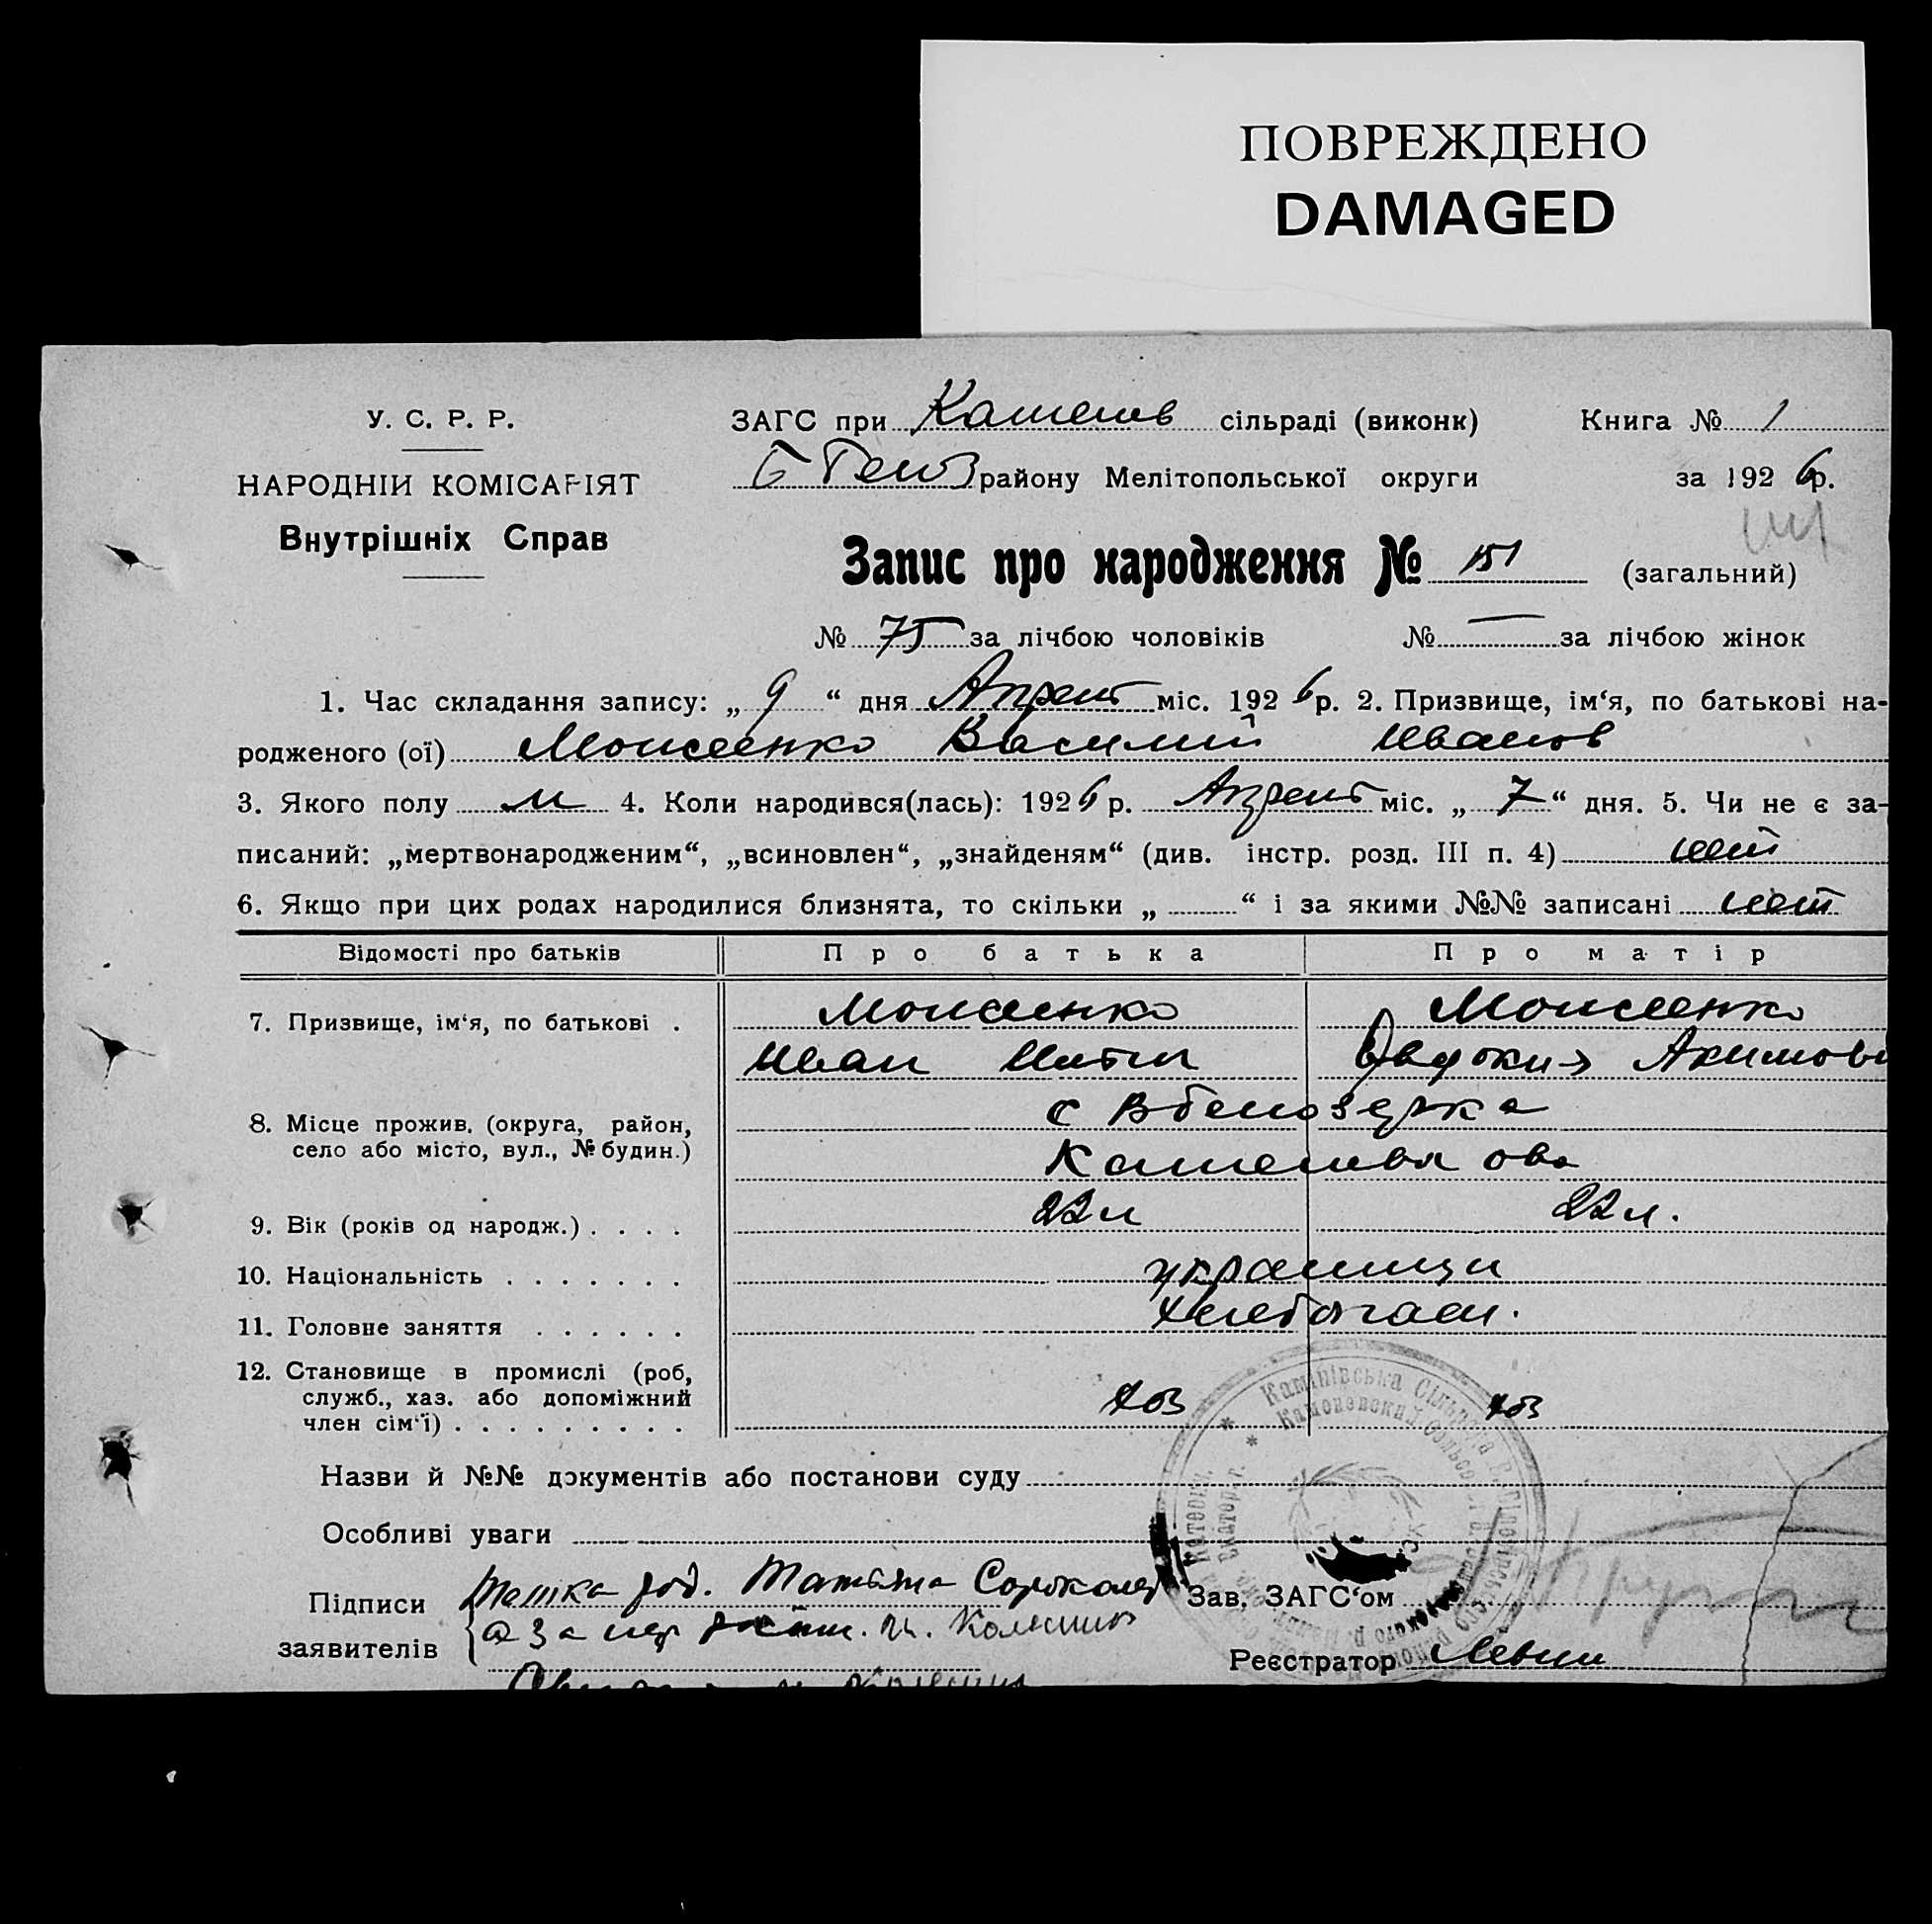 ПОВРЕЖДЕНО
DAMAGED
У. С. Р. Р.
НАРОДНІЙ КОМІСАРІЯТ
Внутрішніх Справ
ЗАГС при Каменев сільраді (виконк) Книга № 1
району Мелітопольської округи за 1926 р.
Запис про народження № 151 (загальний)
№ 75 за лічбою чоловіків № — за лічбою жінок
1. Час складання запису: „ 9 “ дня Апреля міс. 1926 р. 2. Призвище, ім‘я, по батькові на-
родженого (ої) Моисеенко Василий Иванов
3. Якого полу м 4. Коли народився(лась): 1926 р. Апреля міс. „ 7 “ дня. 5. Чи не є за-
писаний: „мертвонародженим“, „всиновлен“, „знайденям“ (див. інстр. розд. III п. 4) нет
6. Якщо при цих родах народилися близнята, то скільки „ “ і за якими №№ записані нет
Відомості про батьків Про батька Про матір
7. Призвище, ім‘я, по батькові . Моисеенко Моисеенко
Иван Евдокия Акимовн
8. Місце прожив. (округа, район, село або місто, вул., № будин.) с В белозерка
Каменев
9. Вік (років од народж.) . . . . 22 л 22 л.
10. Національність . . . . . . . украинцы
11. Головне заняття . . . . . . хлебопаш.
12. Становище в промислі (роб, служб., хаз. або допоміжний член сім‘ї) . . . . . . . . . хоз хоз
Назви й №№ документів або постанови суду
Особливі уваги
Підписи заявителів
Татьяна
Зав. ЗАГС‘ом
Реєстратор Левин